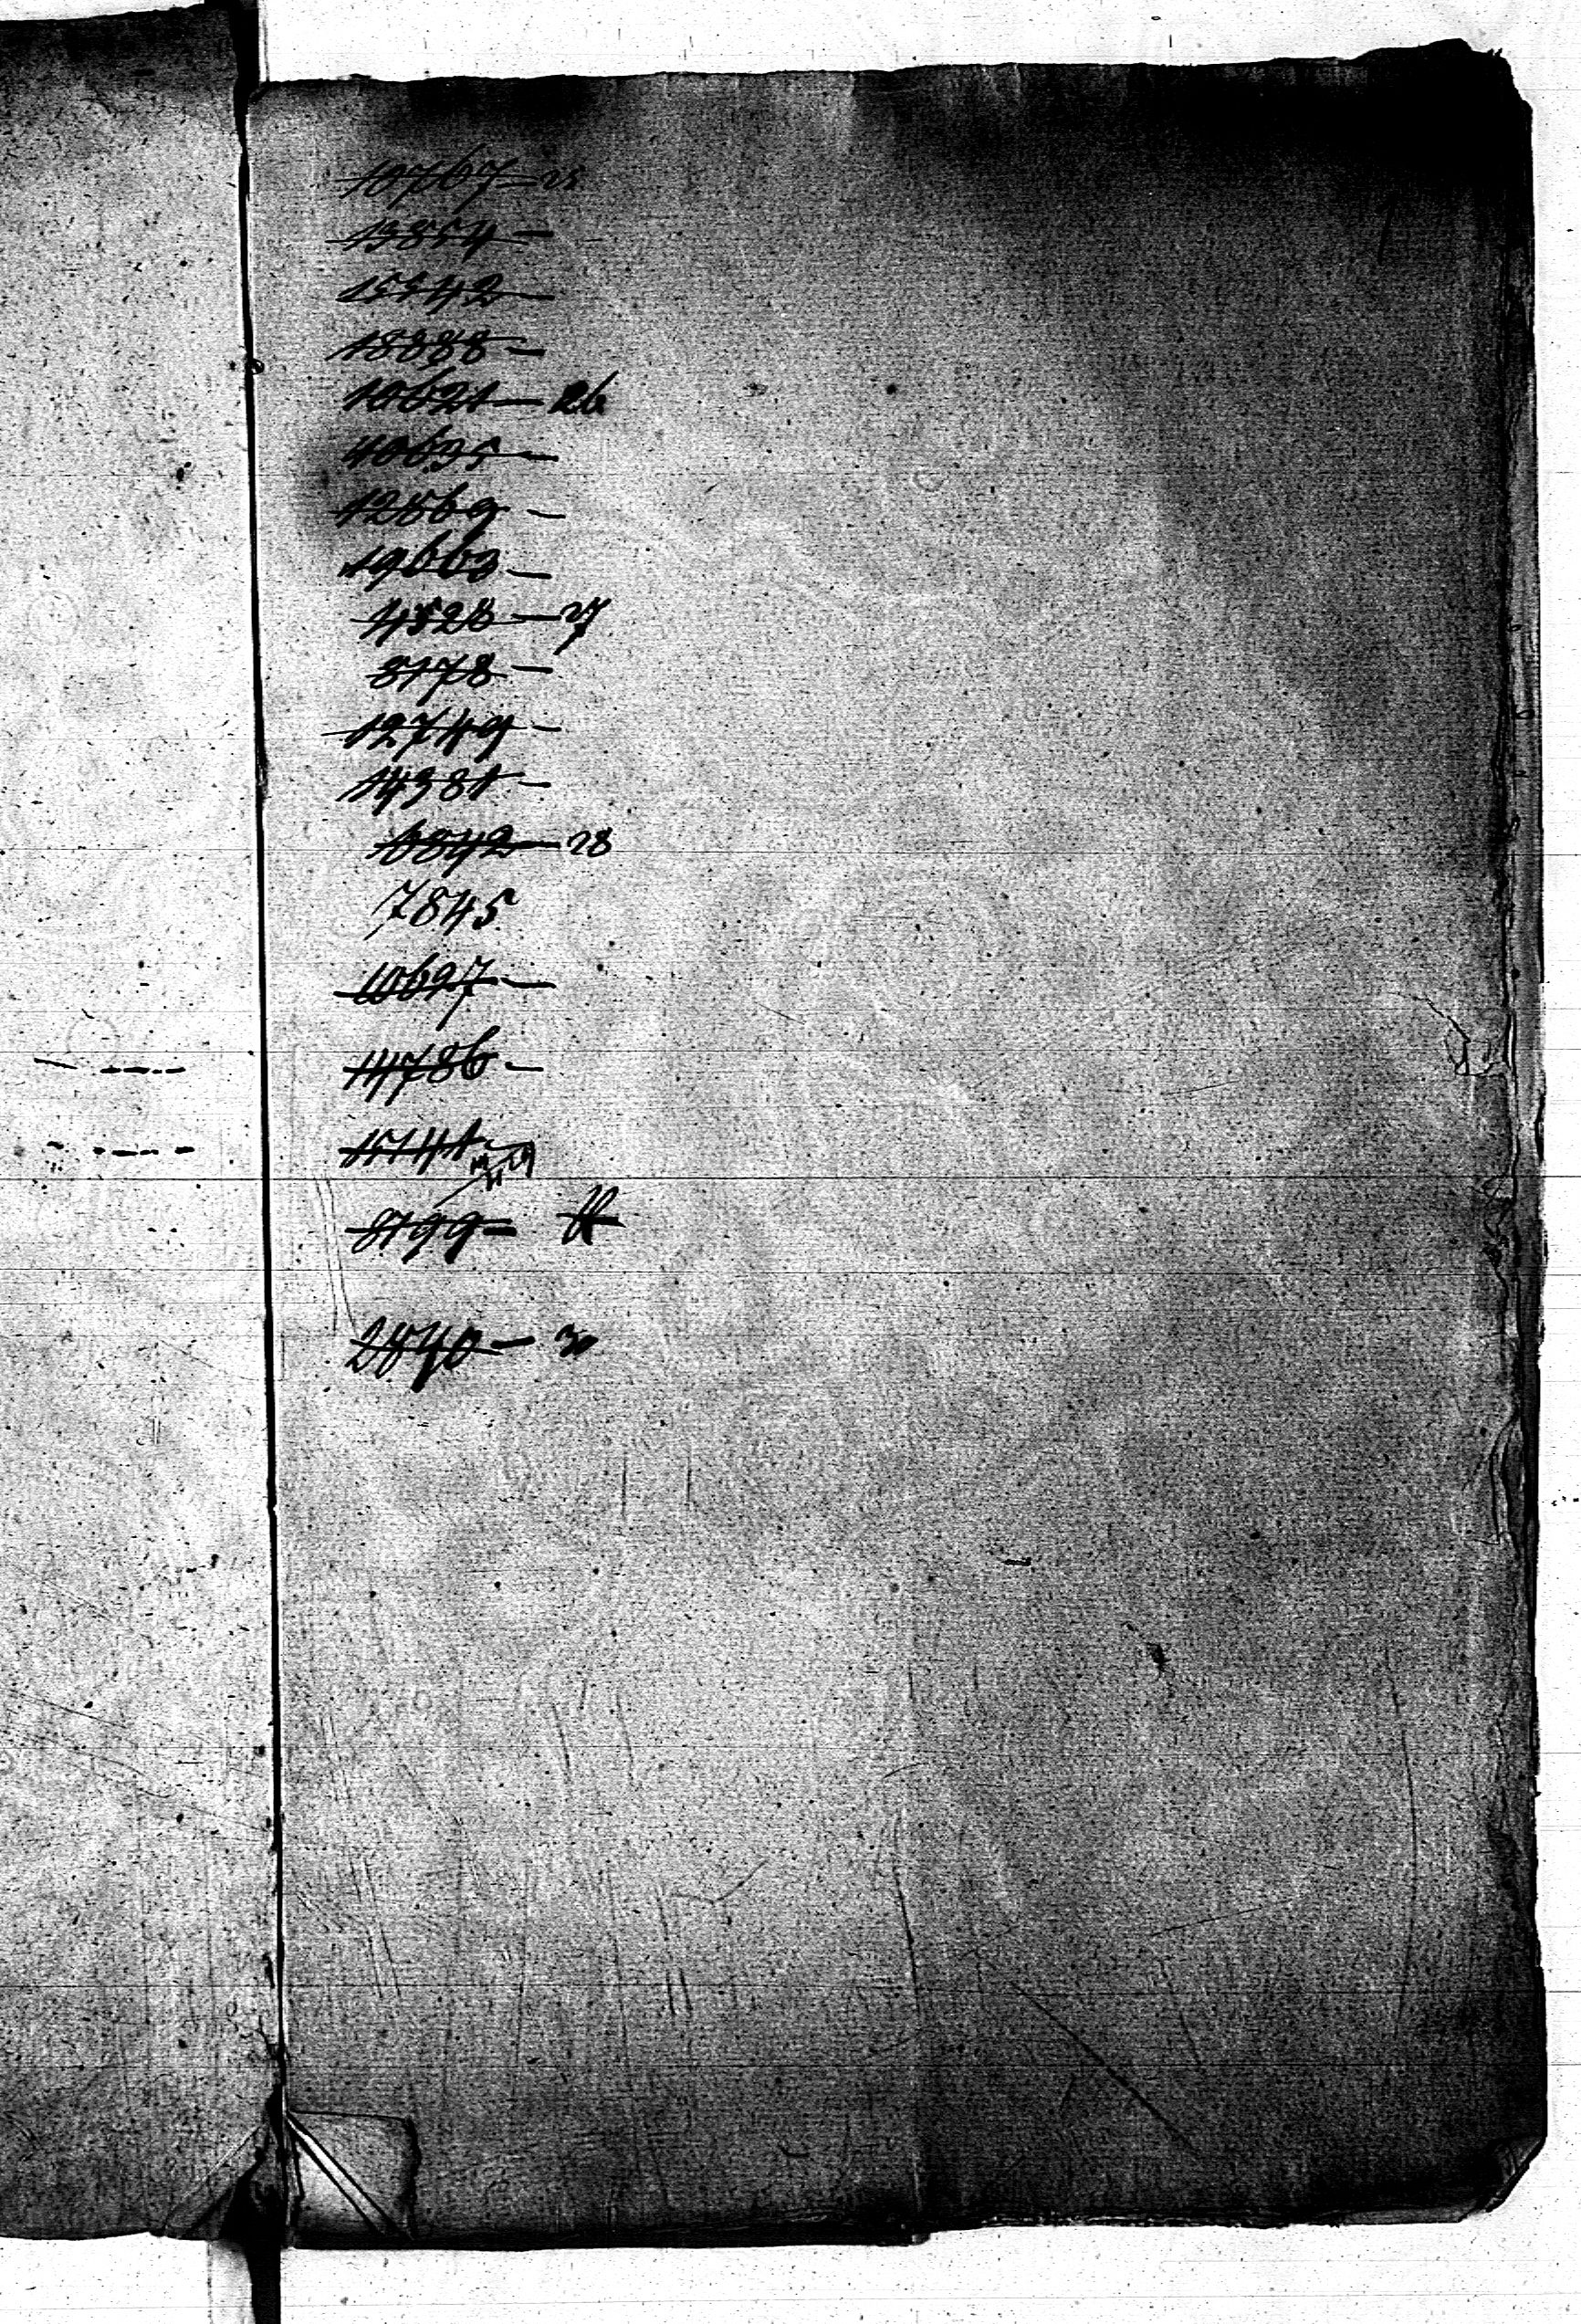 10767 — 25
13854 —
15142 —
18388 —
10621 — 26
10635 —
12569 —
19663 —
4528 — 27
8178 —
12749 —
14381 —
6842 — 28
7845
10697 —
14786 —
15141 —
8799 —
2840 — 30